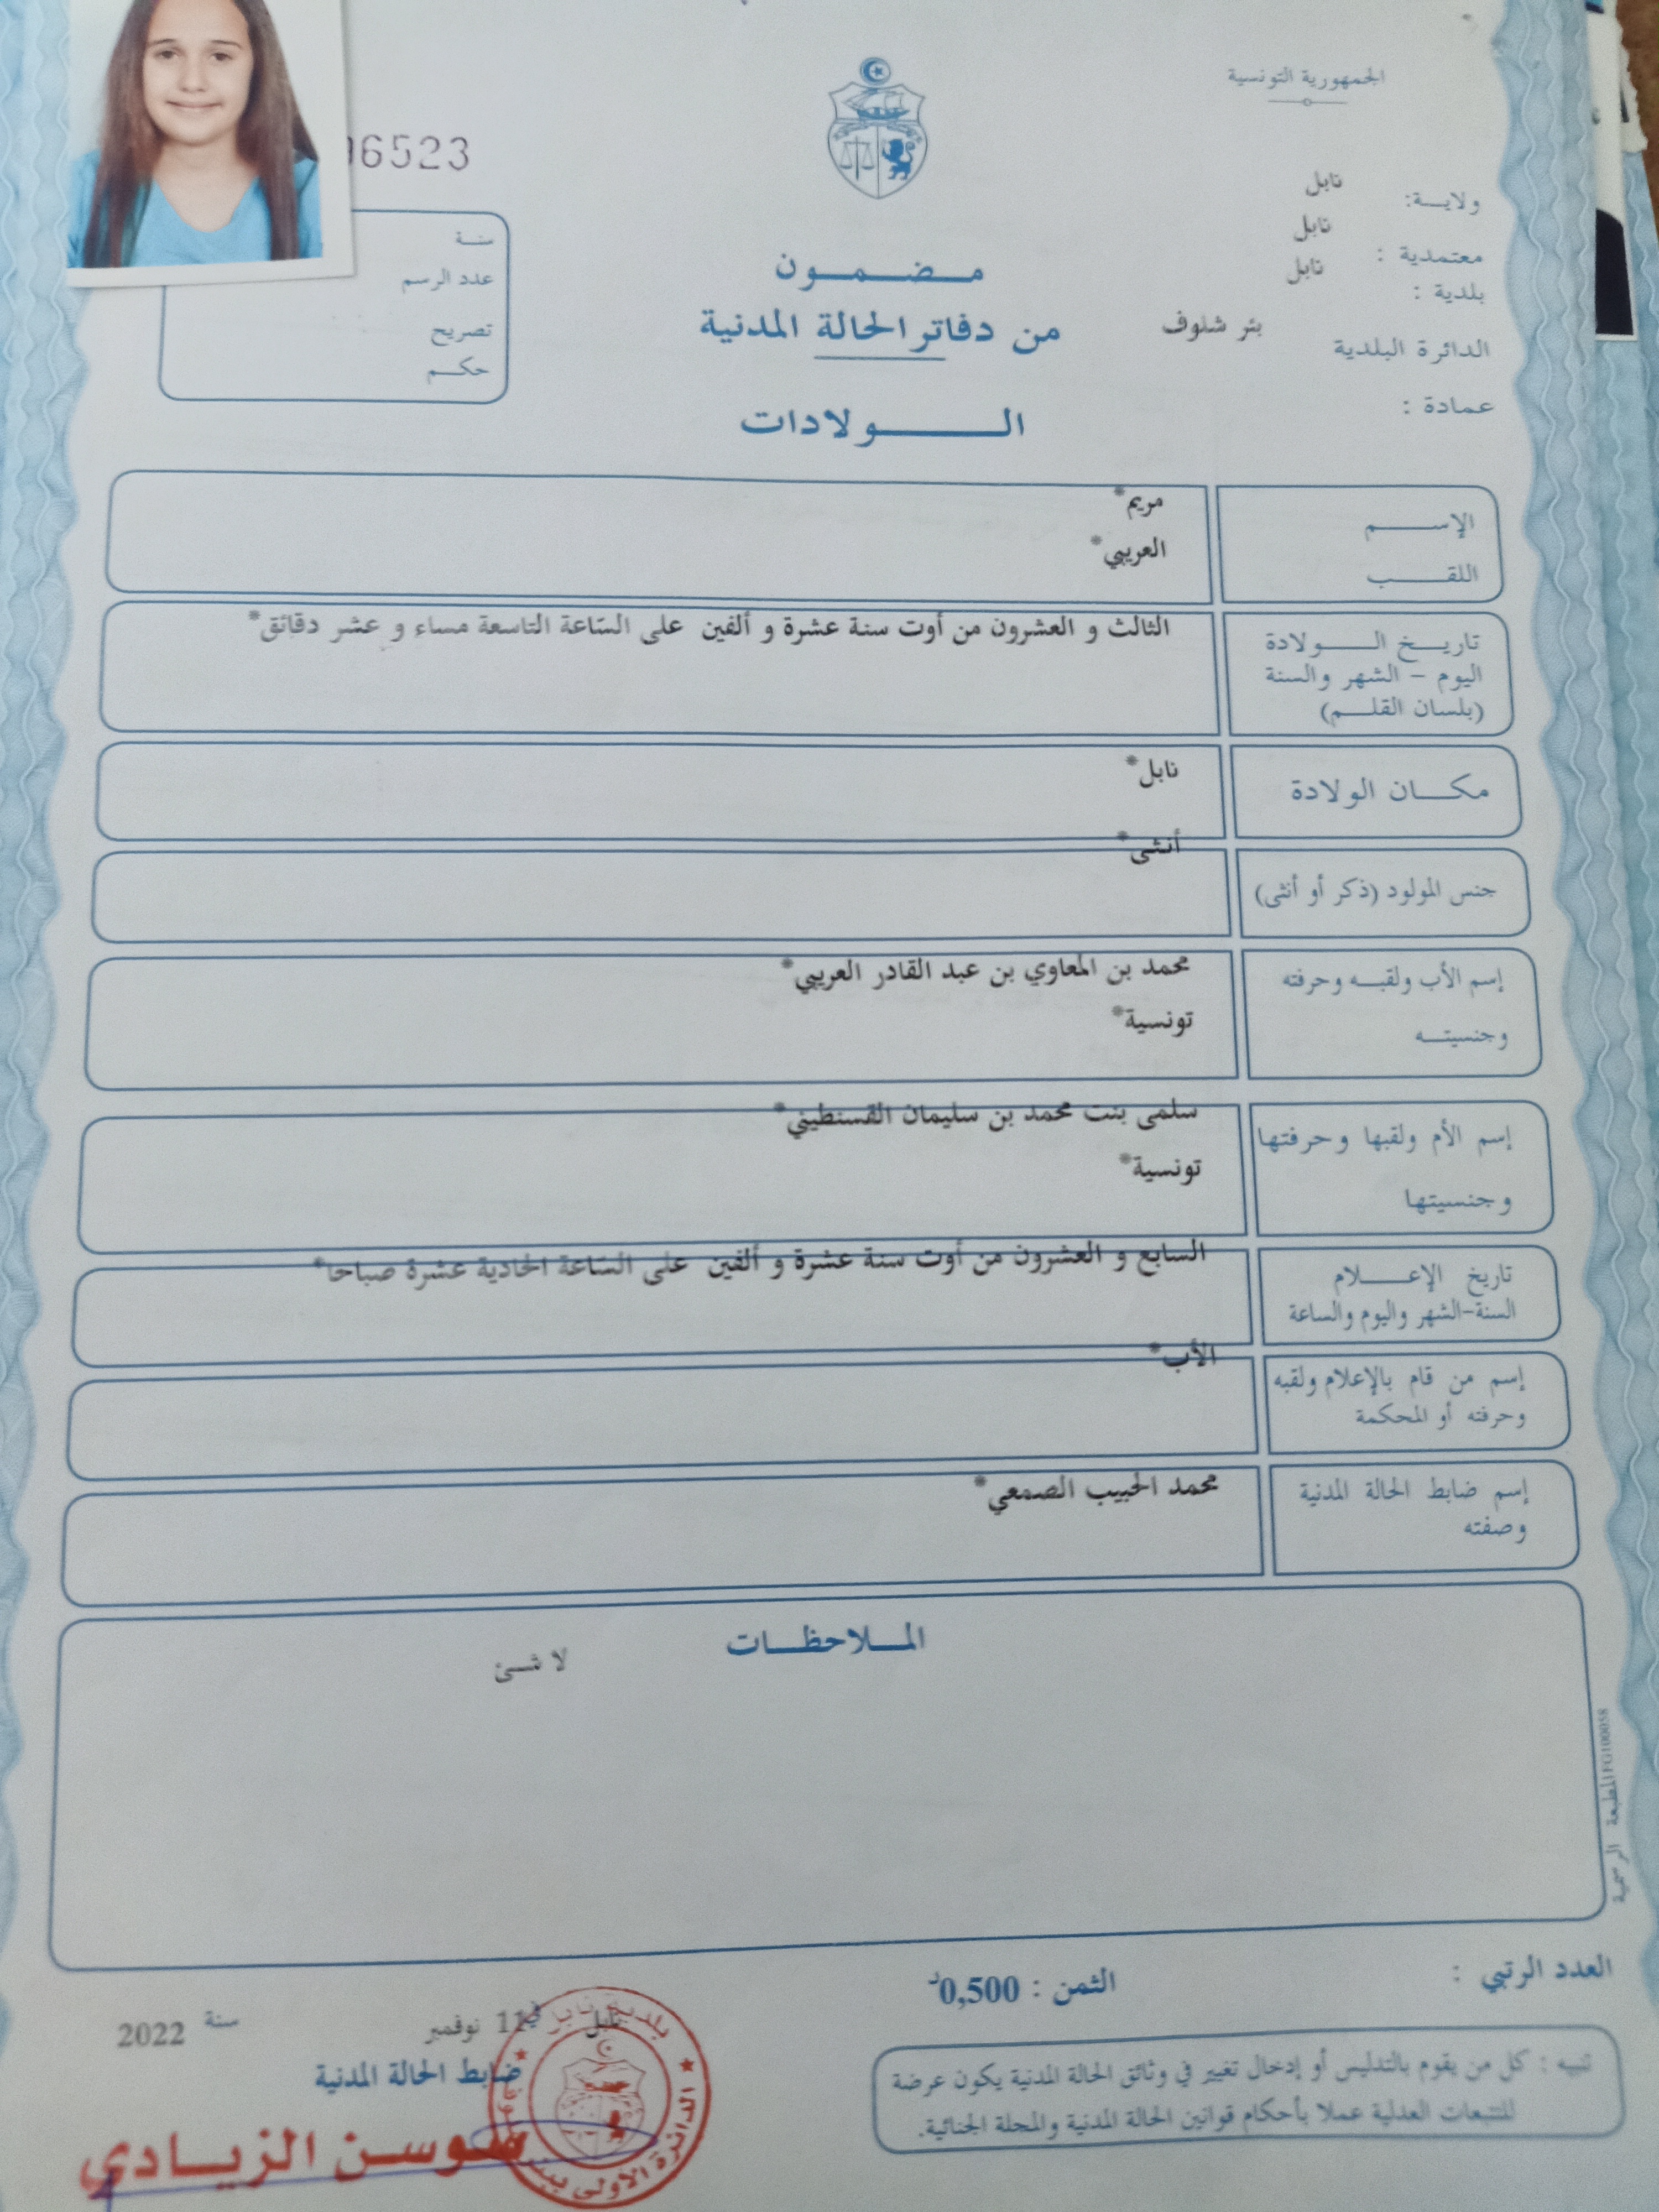 الجمهورية التونسية
ولايـــة: نابل
معتمدية : نابل
بلدية : نابل
الدائرة البلدية بئر شلوف
عمادة :
مـضـمـون
من دفاتر الحالة المدنية
الـــولادات
6523
سنـة
عدد الرسم
تصريح
حكـم
الإســـم مريم*
اللقـــب العريبي*
تاريـخ الـــولادة
اليوم - الشهر والسنة
(بلسان القلـم)
الثالث و العشرون من أوت سنة عشرة و ألفين على الساعة التاسعة مساء و عشر دقائق*
مكــان الولادة نابل*
جنس المولود (ذكر أو أنثى) أنثى*
إسم الأب ولقبـه وحرفته محمد بن المعاوي بن عبد القادر العريبي*
وجنسيتـه تونسية*
إسم الأم ولقبها وحرفتها سلمى بنت محمد بن سليمان القسنطيني*
وجنسيتها تونسية*
تاريخ الإعـــلام السابع و العشرون من أوت سنة عشرة و ألفين على الساعة الحادية عشرة صباحا*
السنة-الشهر واليوم والساعة
إسم من قام بالإعلام ولقبه الأب*
وحرفته أو المحكمة
إسم ضابط الحالة المدنية محمد الحبيب الصمعي*
وصفته
المـلاحظـات
لا شـئ
المطبعة الرسمية
العدد الرتبي :
الثمن : 0,500د
نابل في 11 نوفمبر سنة 2022
ضابط الحالة المدنية
سوسن الزيـادي
بلدية نابل
الدائرة الأولى
تنبيه : كل من يقوم بالتدليس أو إدخال تغيير في وثائق الحالة المدنية يكون عرضة
للتتبعات العدلية عملا بأحكام قوانين الحالة المدنية والمجلة الجنائية.